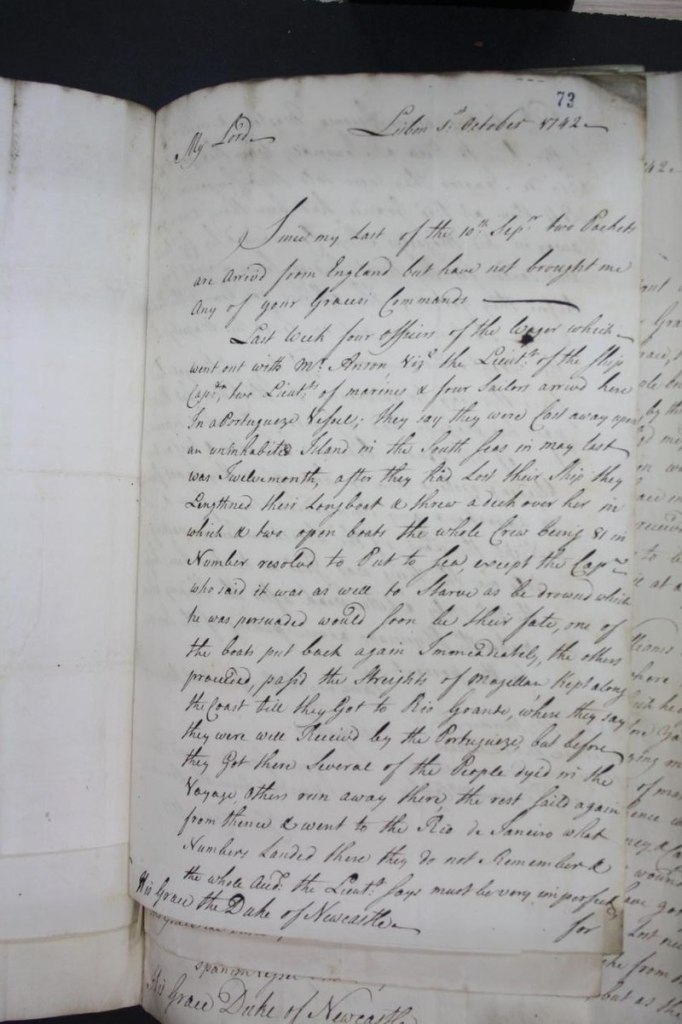 73
Lisbon 5th October 1742
My Lord
Since my Last of the 10th Sepr two Packets
are arrivd from England but have not brought me
any of your Graces Commands
Last Week four officers of the Wager which
went out with Mr Anson, Vizt the Lieutt of the Ship
Captn, two Lieuts of marines & four Sailors arrivd here
In a Portugueze Vessel; they say they were Cast away upon
an uninhabited Island in the South Seas in may last
was Twelvemonth, after they had Lost their Ship they
Lengthned their Longboat & threw a deck over her in
which & two open boats the whole Crew being 81 in
Number resolvd to Put to Sea, except the Capn
who said it was as well to Starve as be drowned which
he was persuaded would soon be their fate, one of
the boats put back again Immediately, the others
proceeded, pass'd the Streights of Magellan Kept along
the Coast till they Got to Rio Grande, where they say
they were well Receivd by the Portugueze, but before
they Got there Several of the People dyed in the
Voyage, others run away there, the rest saild again
from thence & went to the Rio de Janeiro what
Numbers Landed there they do not Remember &
the whole Acct the Lieutt says must be very imperfect
for
His Grace the Duke of Newcastle
His Grace Duke of Newcastle